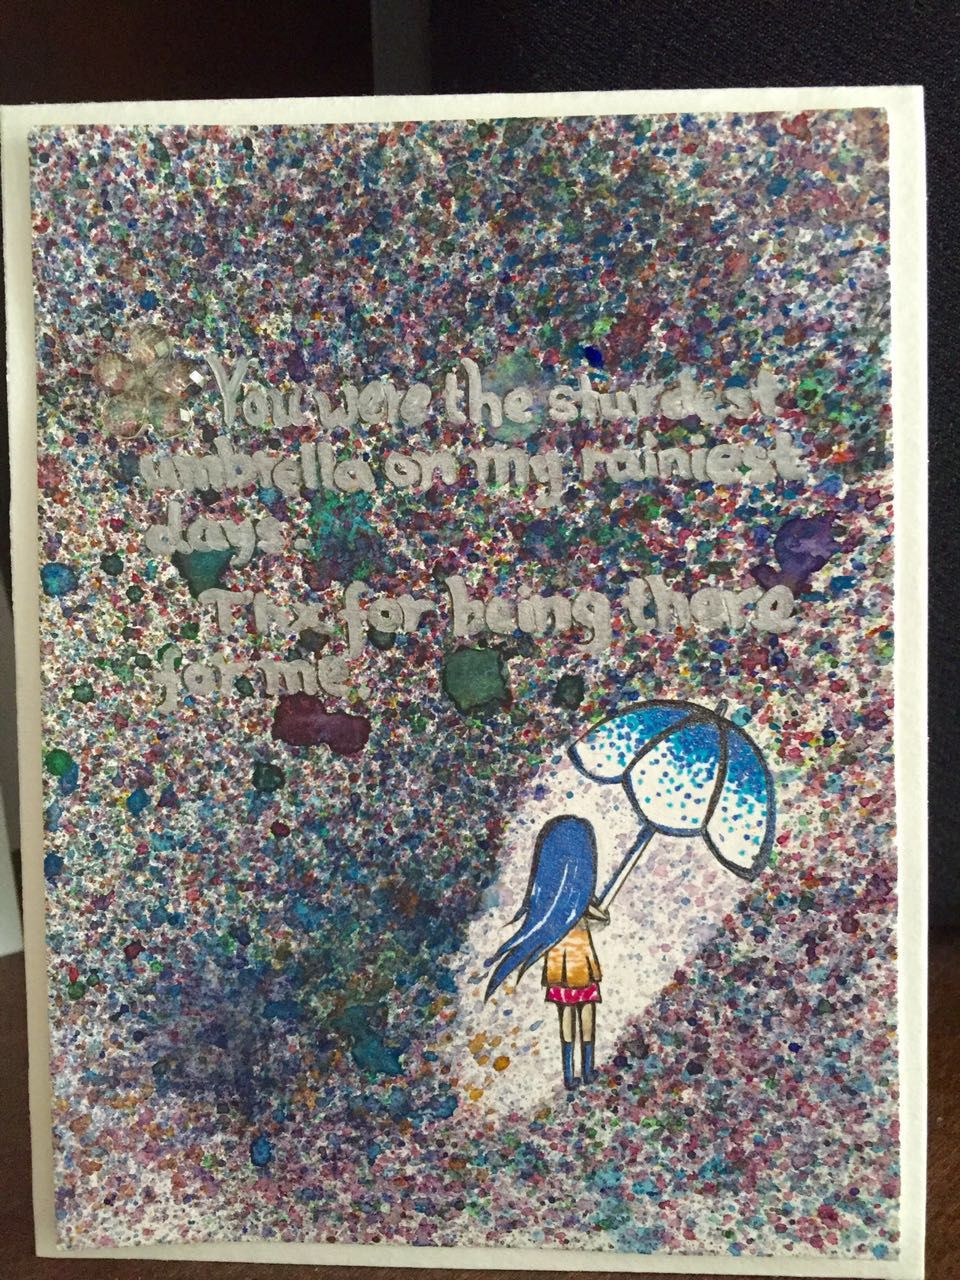 You were the sturdest
umbrella on my rainiest
days.
Thx for being there
for me.